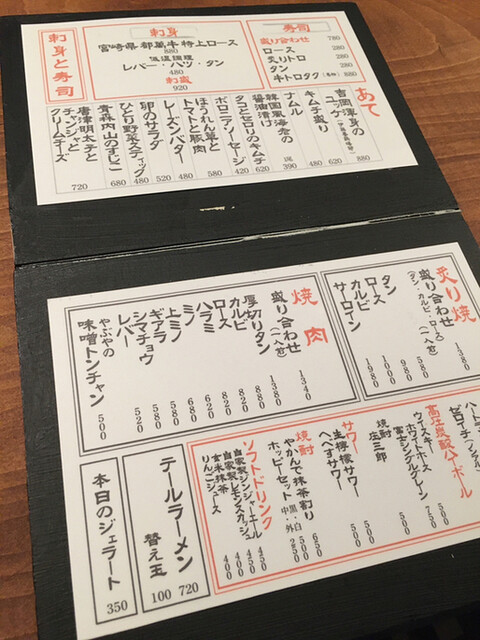 刺身と寿司
刺身
宮崎県 都萬牛 特上ロース
880
低温調理
レバー・ハツ・タン
480
刺盛
920
寿司
盛り合わせ 780
ロース
炙りトロ
タン
キトロタク(巻物) 880
あて
吉岡渾身の
ユッケ 880
キムチ盛り 620
ナムル 480
韓国風海苔の 390
醤油漬け 620
タコとセロリのキムチ 420
ボロニアソーセージ 580
ほうれん草と
トマトと豚肉 480
レーズンバター 520
卵のサラダ 480
ひとり野菜スティック 480
青森内山のすじこ 680
唐津明太子と
チャンジャと
クリームチーズ 720
炙り焼
盛り合わせ(一人前) 1380
(タン・カルビ・ロース)
タン 580
ロース 980
カルビ 1080
サーロイン 1980
焼肉
盛り合わせ(一人前) 1340
厚切りタン 1380
カルビ 880
ロース 820
ハラミ 820
ミノ 620
上ミノ 680
ギアラ 580
シマチョウ 580
レバー 520
やぶやの
味噌トンチャン 500
高圧炭酸ハイボール
ウイスキーホース
ホワイトホース 500
富士シングルグレーン 750
500
サワー
生檸檬サワー 500
へべすサワー 500
焼酎
庄三郎 500
焼酎
やかんで抹茶割り 650
ホッピーセット 黒・白 500
中・外 250
ソフトドリンク
自家製ジンジャーエール 450
自家製レモンスカッシュ 450
玄米抹茶 400
りんごジュース 400
テールラーメン 720
替え玉 100
本日のジェラート 350